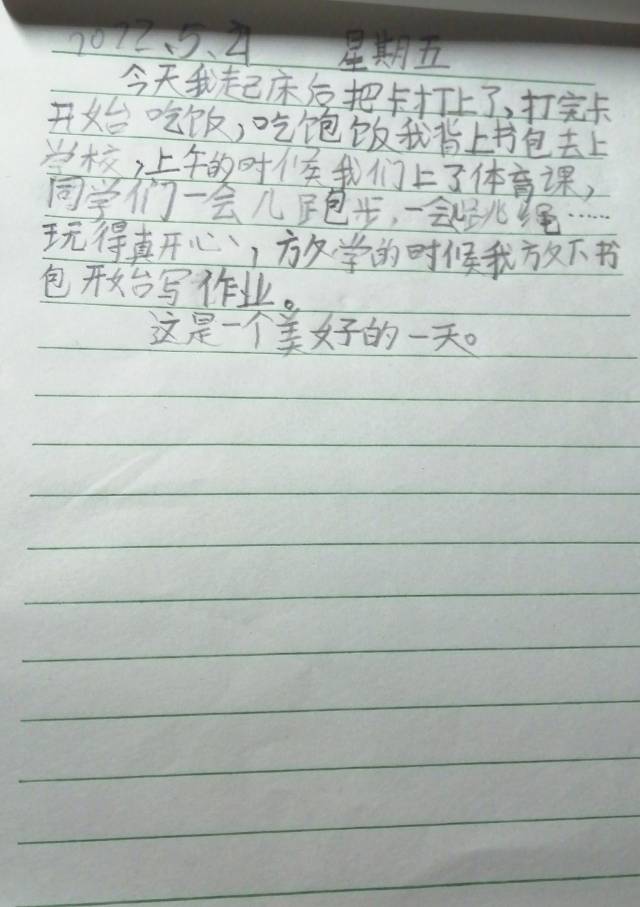 2022.5.21 星期五
今天我起床后把卡打上了,打完卡
开始吃饭,吃饱饭我背上书包去上
学校,上午的时候我们上了体育课,
同学们一会儿跑步,一会跳绳……
玩得真开心,放学的时候我放下书
包开始写作业。
这是一个美好的一天。